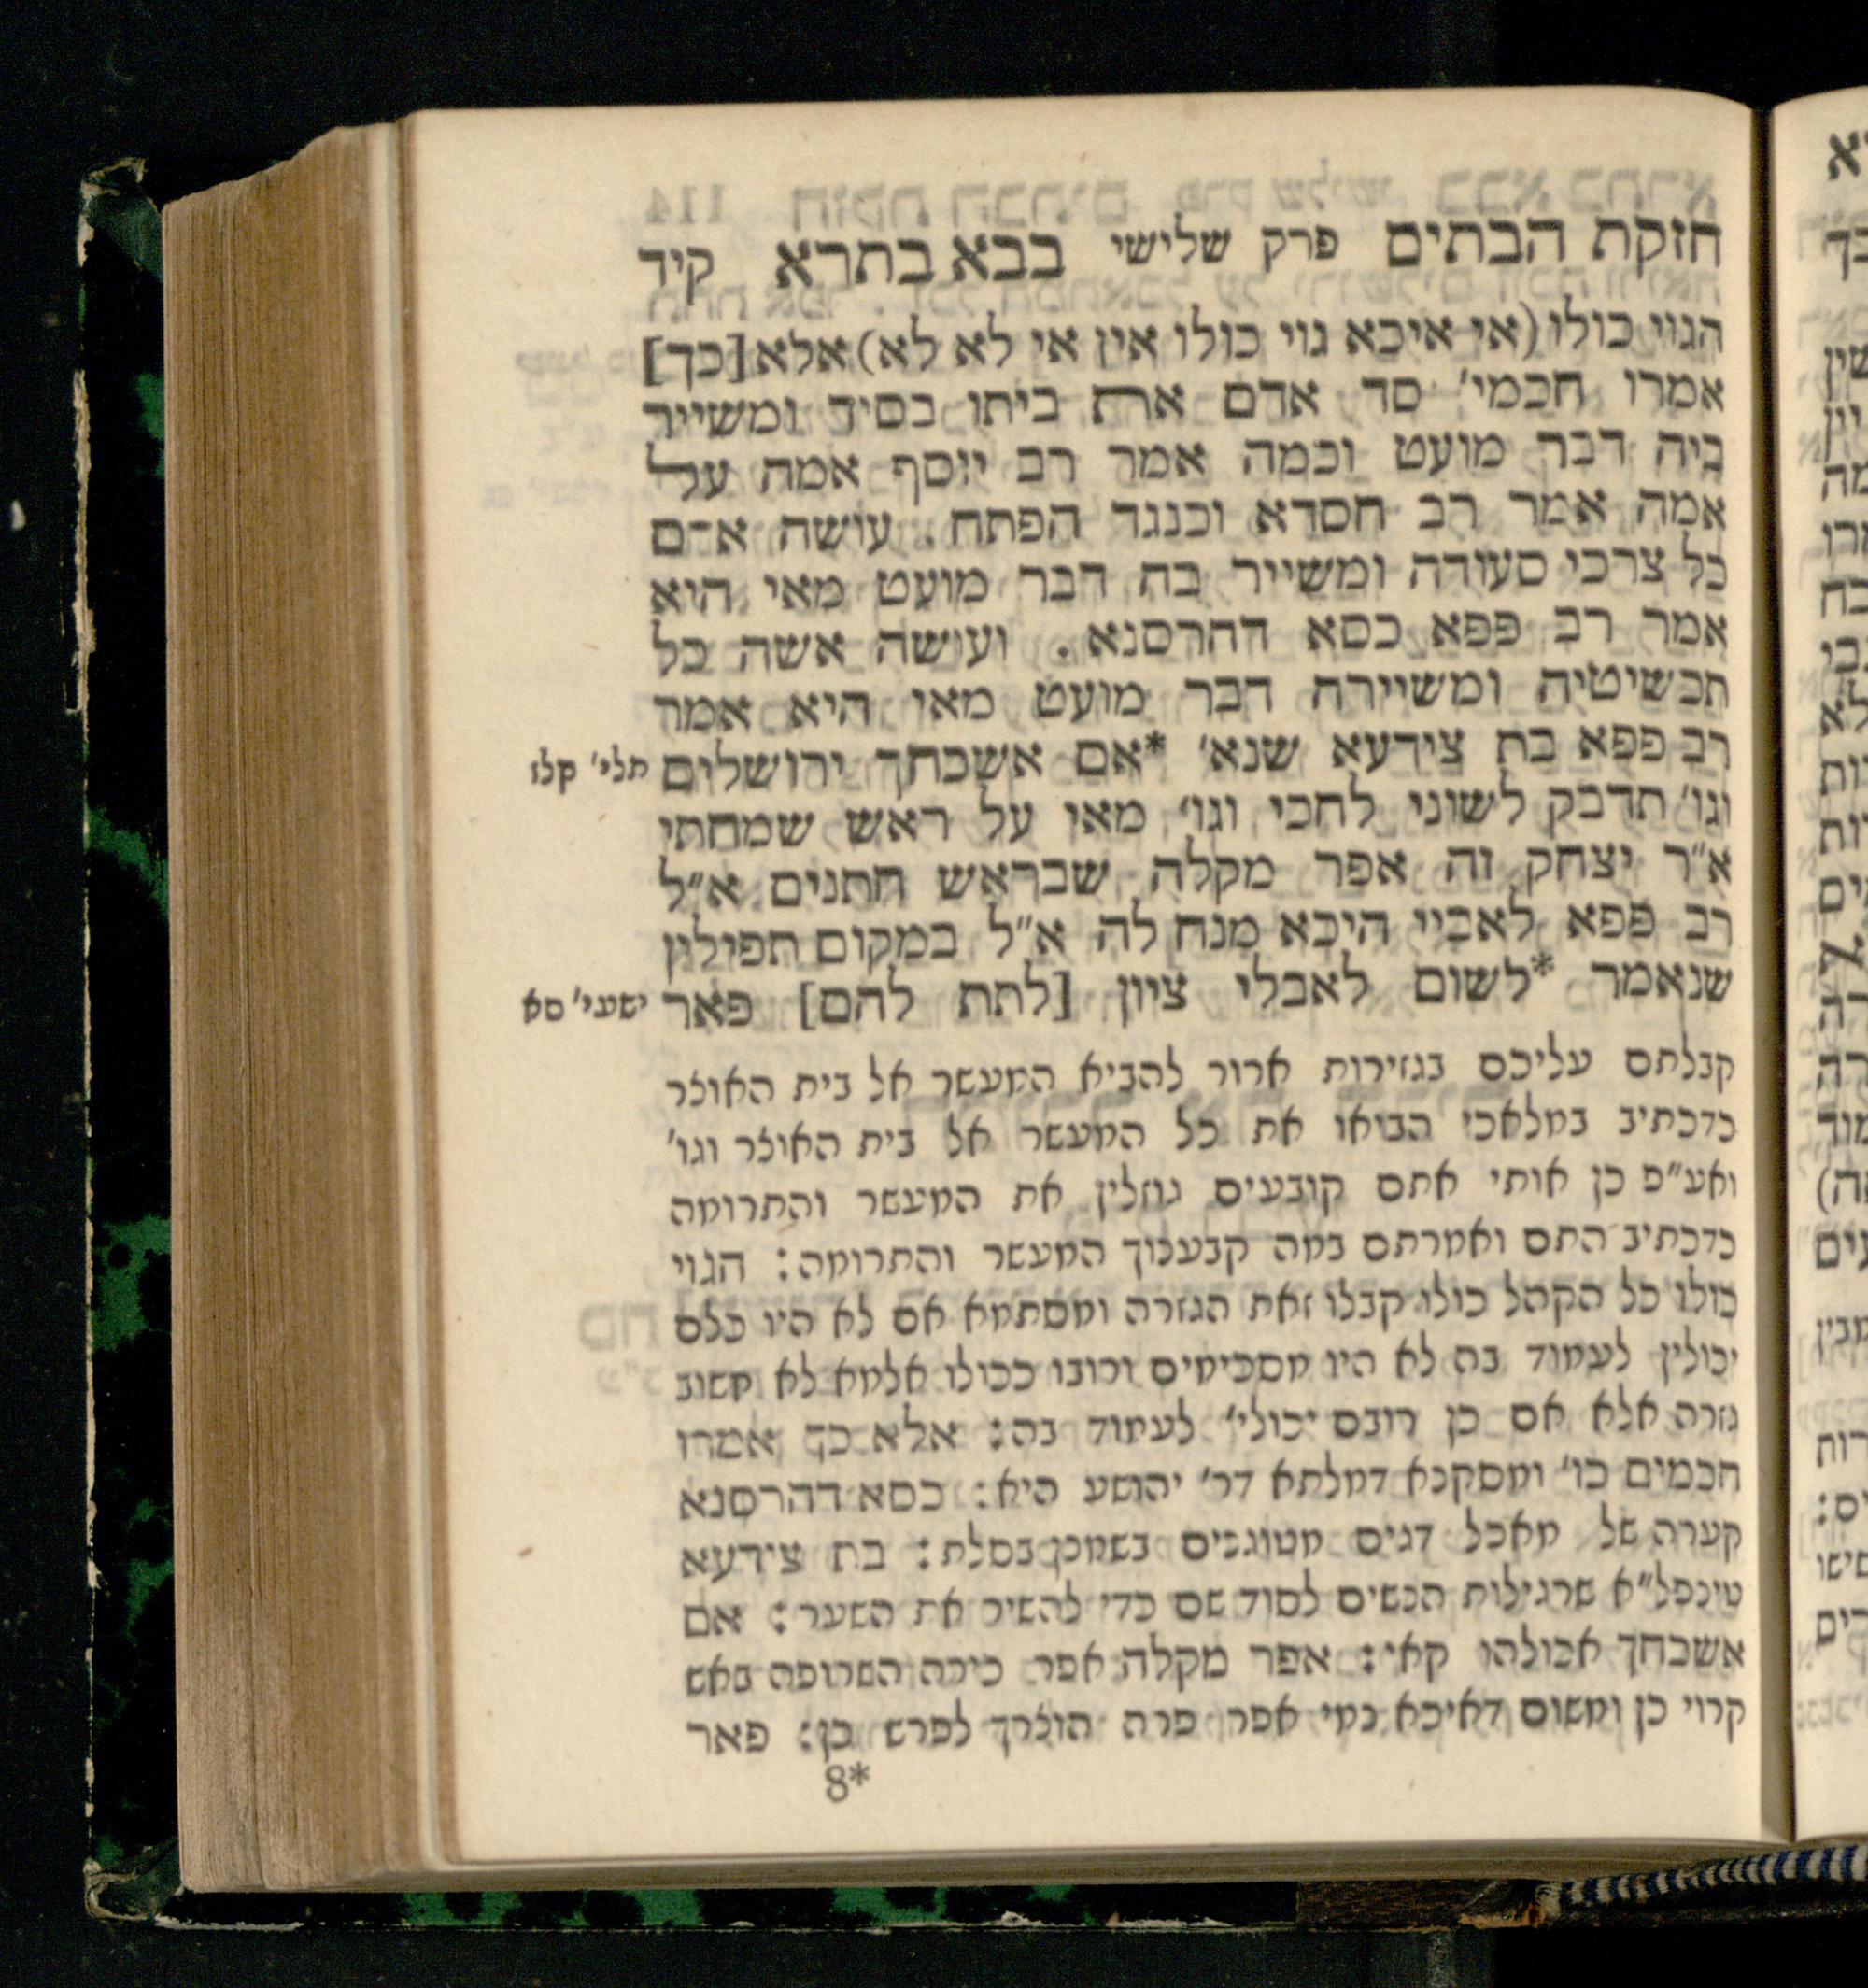 חזקת הבתים פרק שלישי בבא בתרא קיד
הגוי כולו (אי איכא גוי כולו אין אי לא לא) אלא [כך]
אמרו חכמי' סד אדם את ביתו בסיד ומשייר
ביה דבר מועט וכמה אמר רב יוסף אמה על
אמה אמר רב חסדא וכנגד הפתח. עושה אדם
כל צרכי סעודה ומשייר בה דבר מועט מאי היא
אמר רב פפא כסא דהרסנא. ועושה אשה כל
תכשיטיה ומשיירה דבר מועט מאי היא אמר
רב פפא בת צידעא שנא' *אם אשכחך ירושלים
תלי' קלז
וגו' תדבק לשוני לחכי וגו' מאי על ראש שמחתי
א"ר יצחק זה אפר מקלה שבראש חתנים א"ל
רב פפא לאביי היכא מנח לה א"ל במקום תפילין
שנאמר *לשום לאבלי ציון [לתת להם] פאר
ישעי' סא
קבלתם עליכם בגזירות ארור להביא המעשר אל בית האוצר
כדכתיב במלאכי הביאו את כל המעשר אל בית האוצר וגו'
ואע"פ כן אותי אתם קובעים גוזלין את המעשר והתרומה
כדכתיב התם ואמרתם במה קבענוך המעשר והתרומה: הגוי
כולו כל הקהל כולו קבלו זאת הגזרה ומסתמא אם לא היו כלם
יכולין לעמוד בה לא היו מסכימים ורובו ככולו אלמא לא חשוב
גזרה אלא אם כן רובם יכולי' לעמוד בה: אלא כך אמרו
חכמים כו' ומסקנא דמלתא דר' יהושע היא: כסא דהרסנא
קערה של מאכל דגים מטוגנים בשמנן בסלת: בת צידעא
טינפל"א שרגילות הנשים לסוד שם כדי להשיר את השער: אם
אשכחך אכולהו קאי: אפר מקלה אפר כירה השרופה באש
קרוי כן ומשום דאיכא נמי אפר פרה הוצרך לפרש כן: פאר
8*